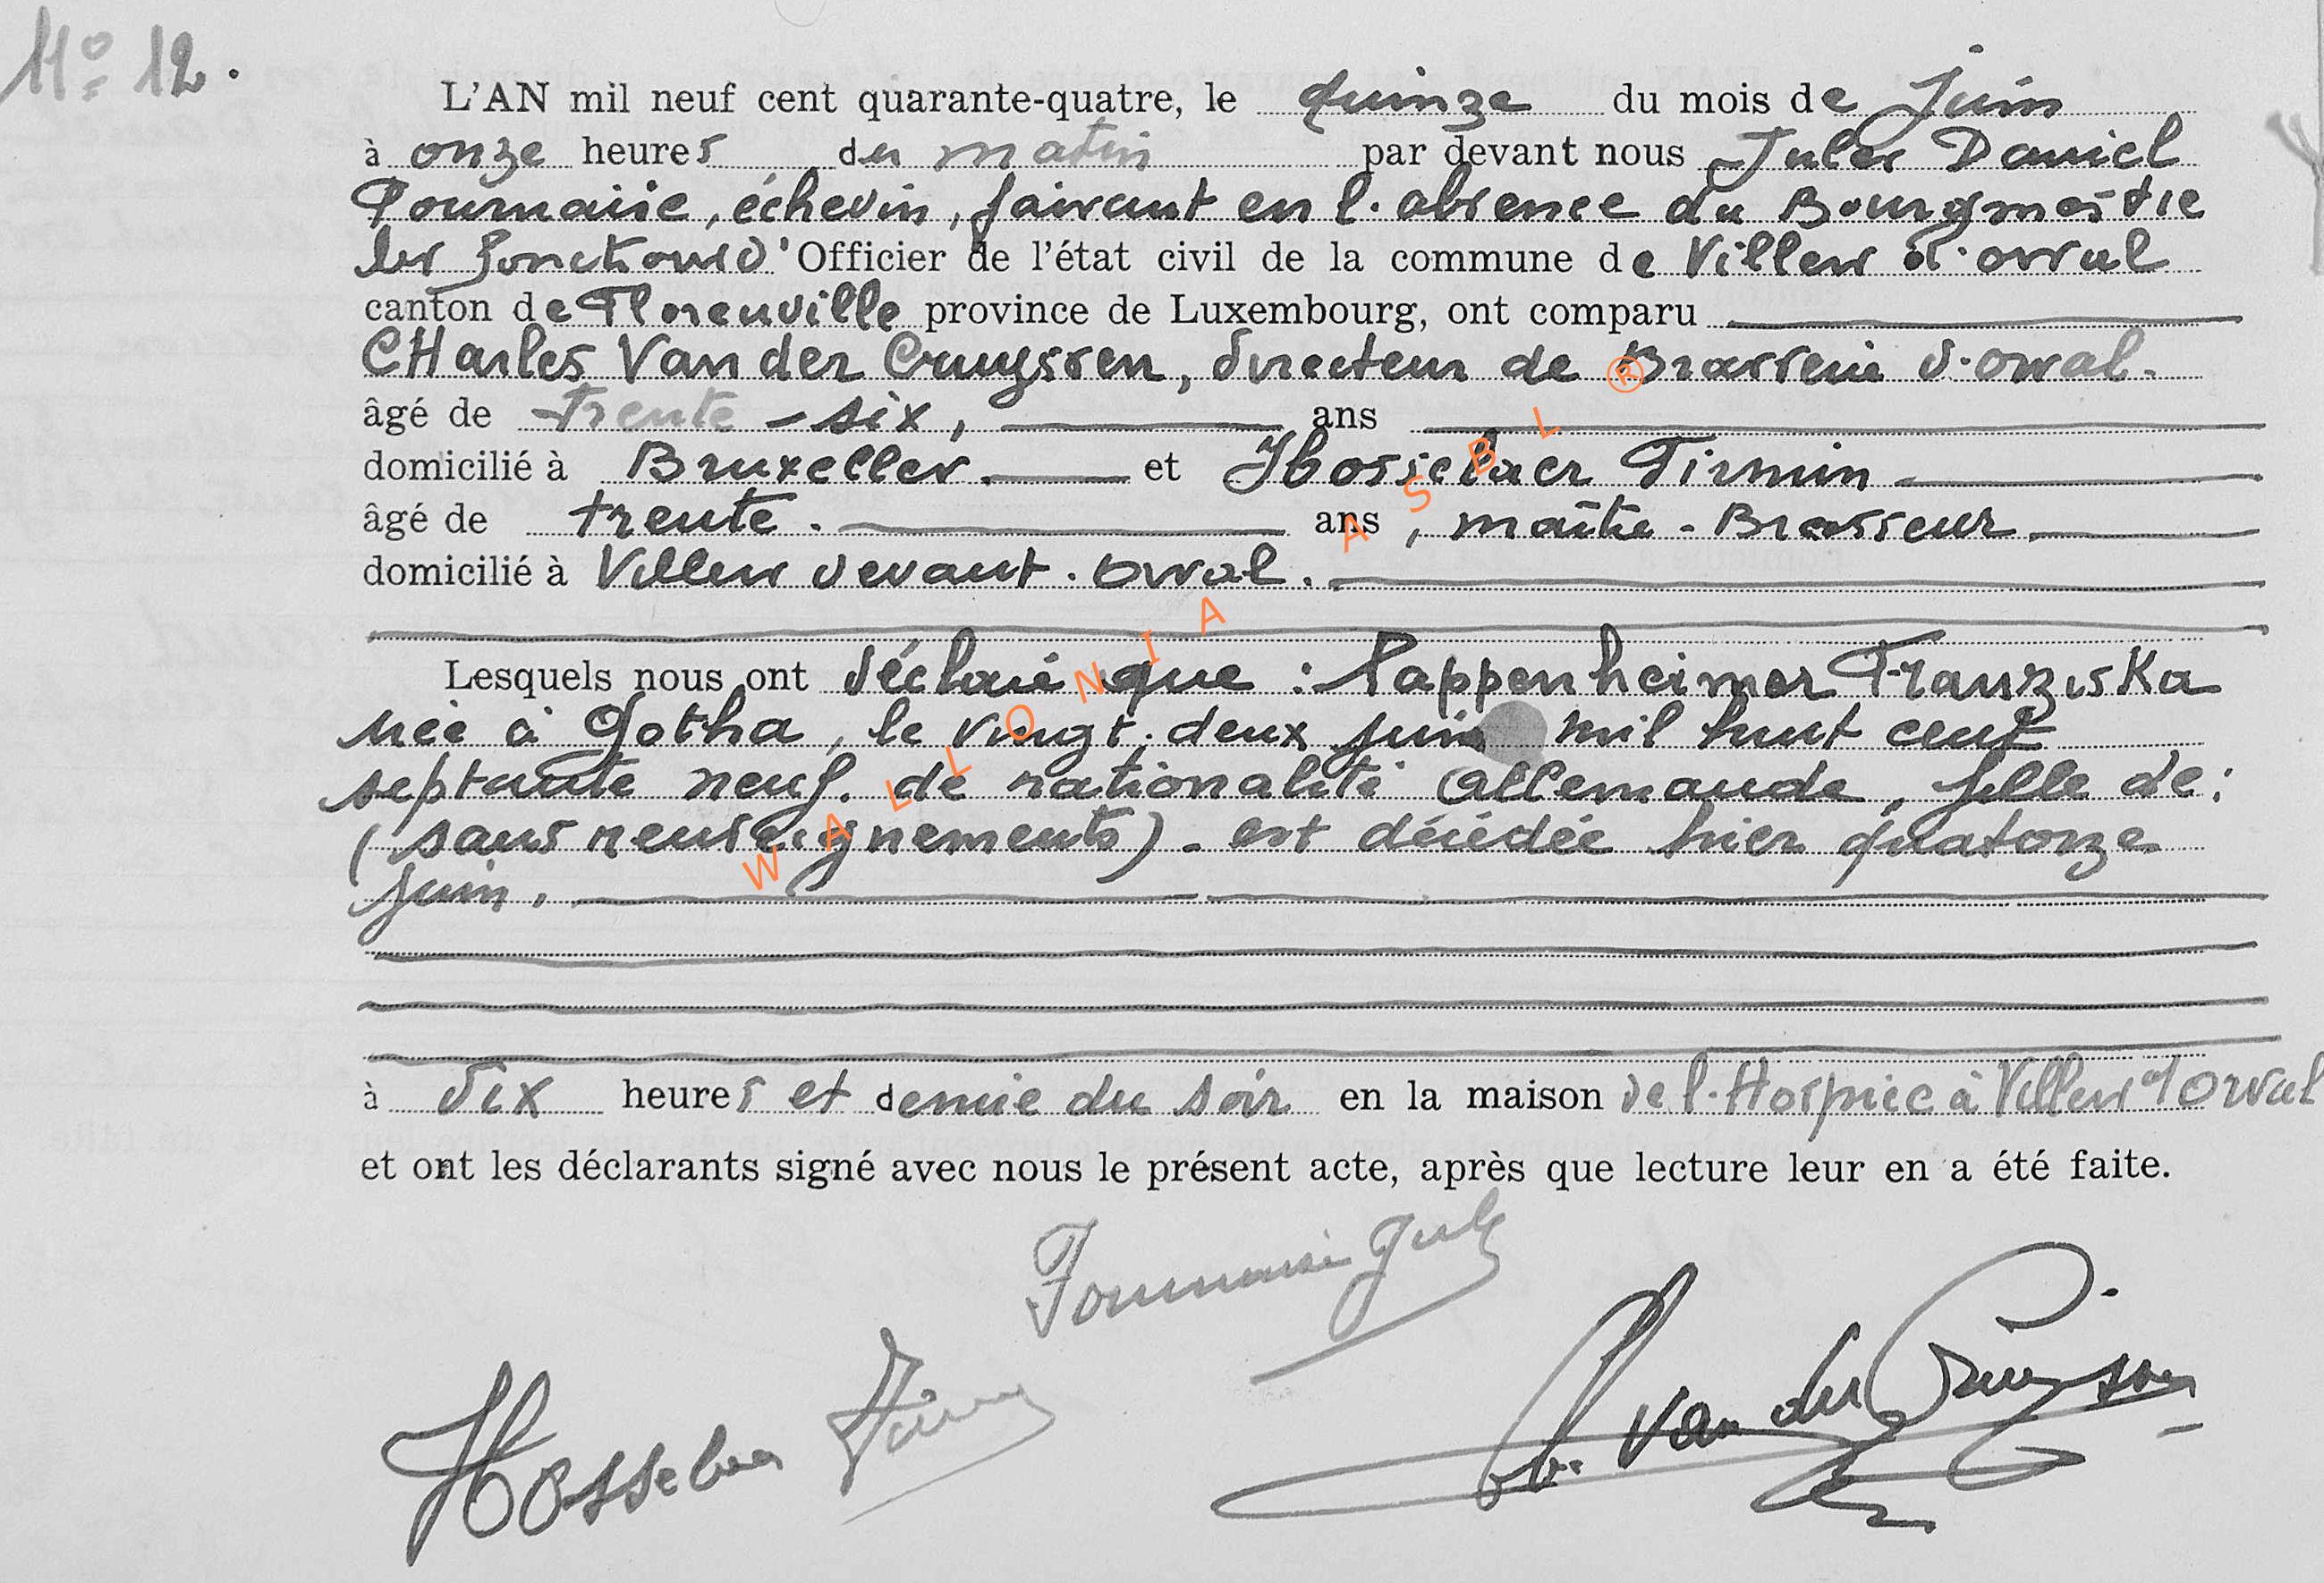 N° 12.
L'AN mil neuf cent quarante-quatre, le quinze du mois de Juin
à onze heures du matin par devant nous Jules Daniel
Fournaise, échevin, faisant en l'absence du Bourgmestre
les fonctions d'Officier de l'état civil de la commune de Villers d'orval
canton de Florenville province de Luxembourg, ont comparu
CHarles Van der Cruyssen, directeur de Brasserie d'orval.
âgé de trente-six, ans
domicilié à Bruxelles. et Hosselaer Firmin
âgé de trente. ans, maître-Brasseur.
domicilié à Villers devant-orval.
Lesquels nous ont déclaré que : Pappenheimer Franziska
née à Gotha, le vingt-deux juin mil huit cent
septante neuf. de nationalité allemande, fille de:
(sans renseignements) - est décédée hier quatorze
juin.
à dix heures et demie du soir en la maison de l'Hospice à Villers d'Orval
et ont les déclarants signé avec nous le présent acte, après que lecture leur en a été faite.
Fournaise Jules
Hosselaer Firmin
Ch. Van der Cruyssen
WALLONIA ASBL ®